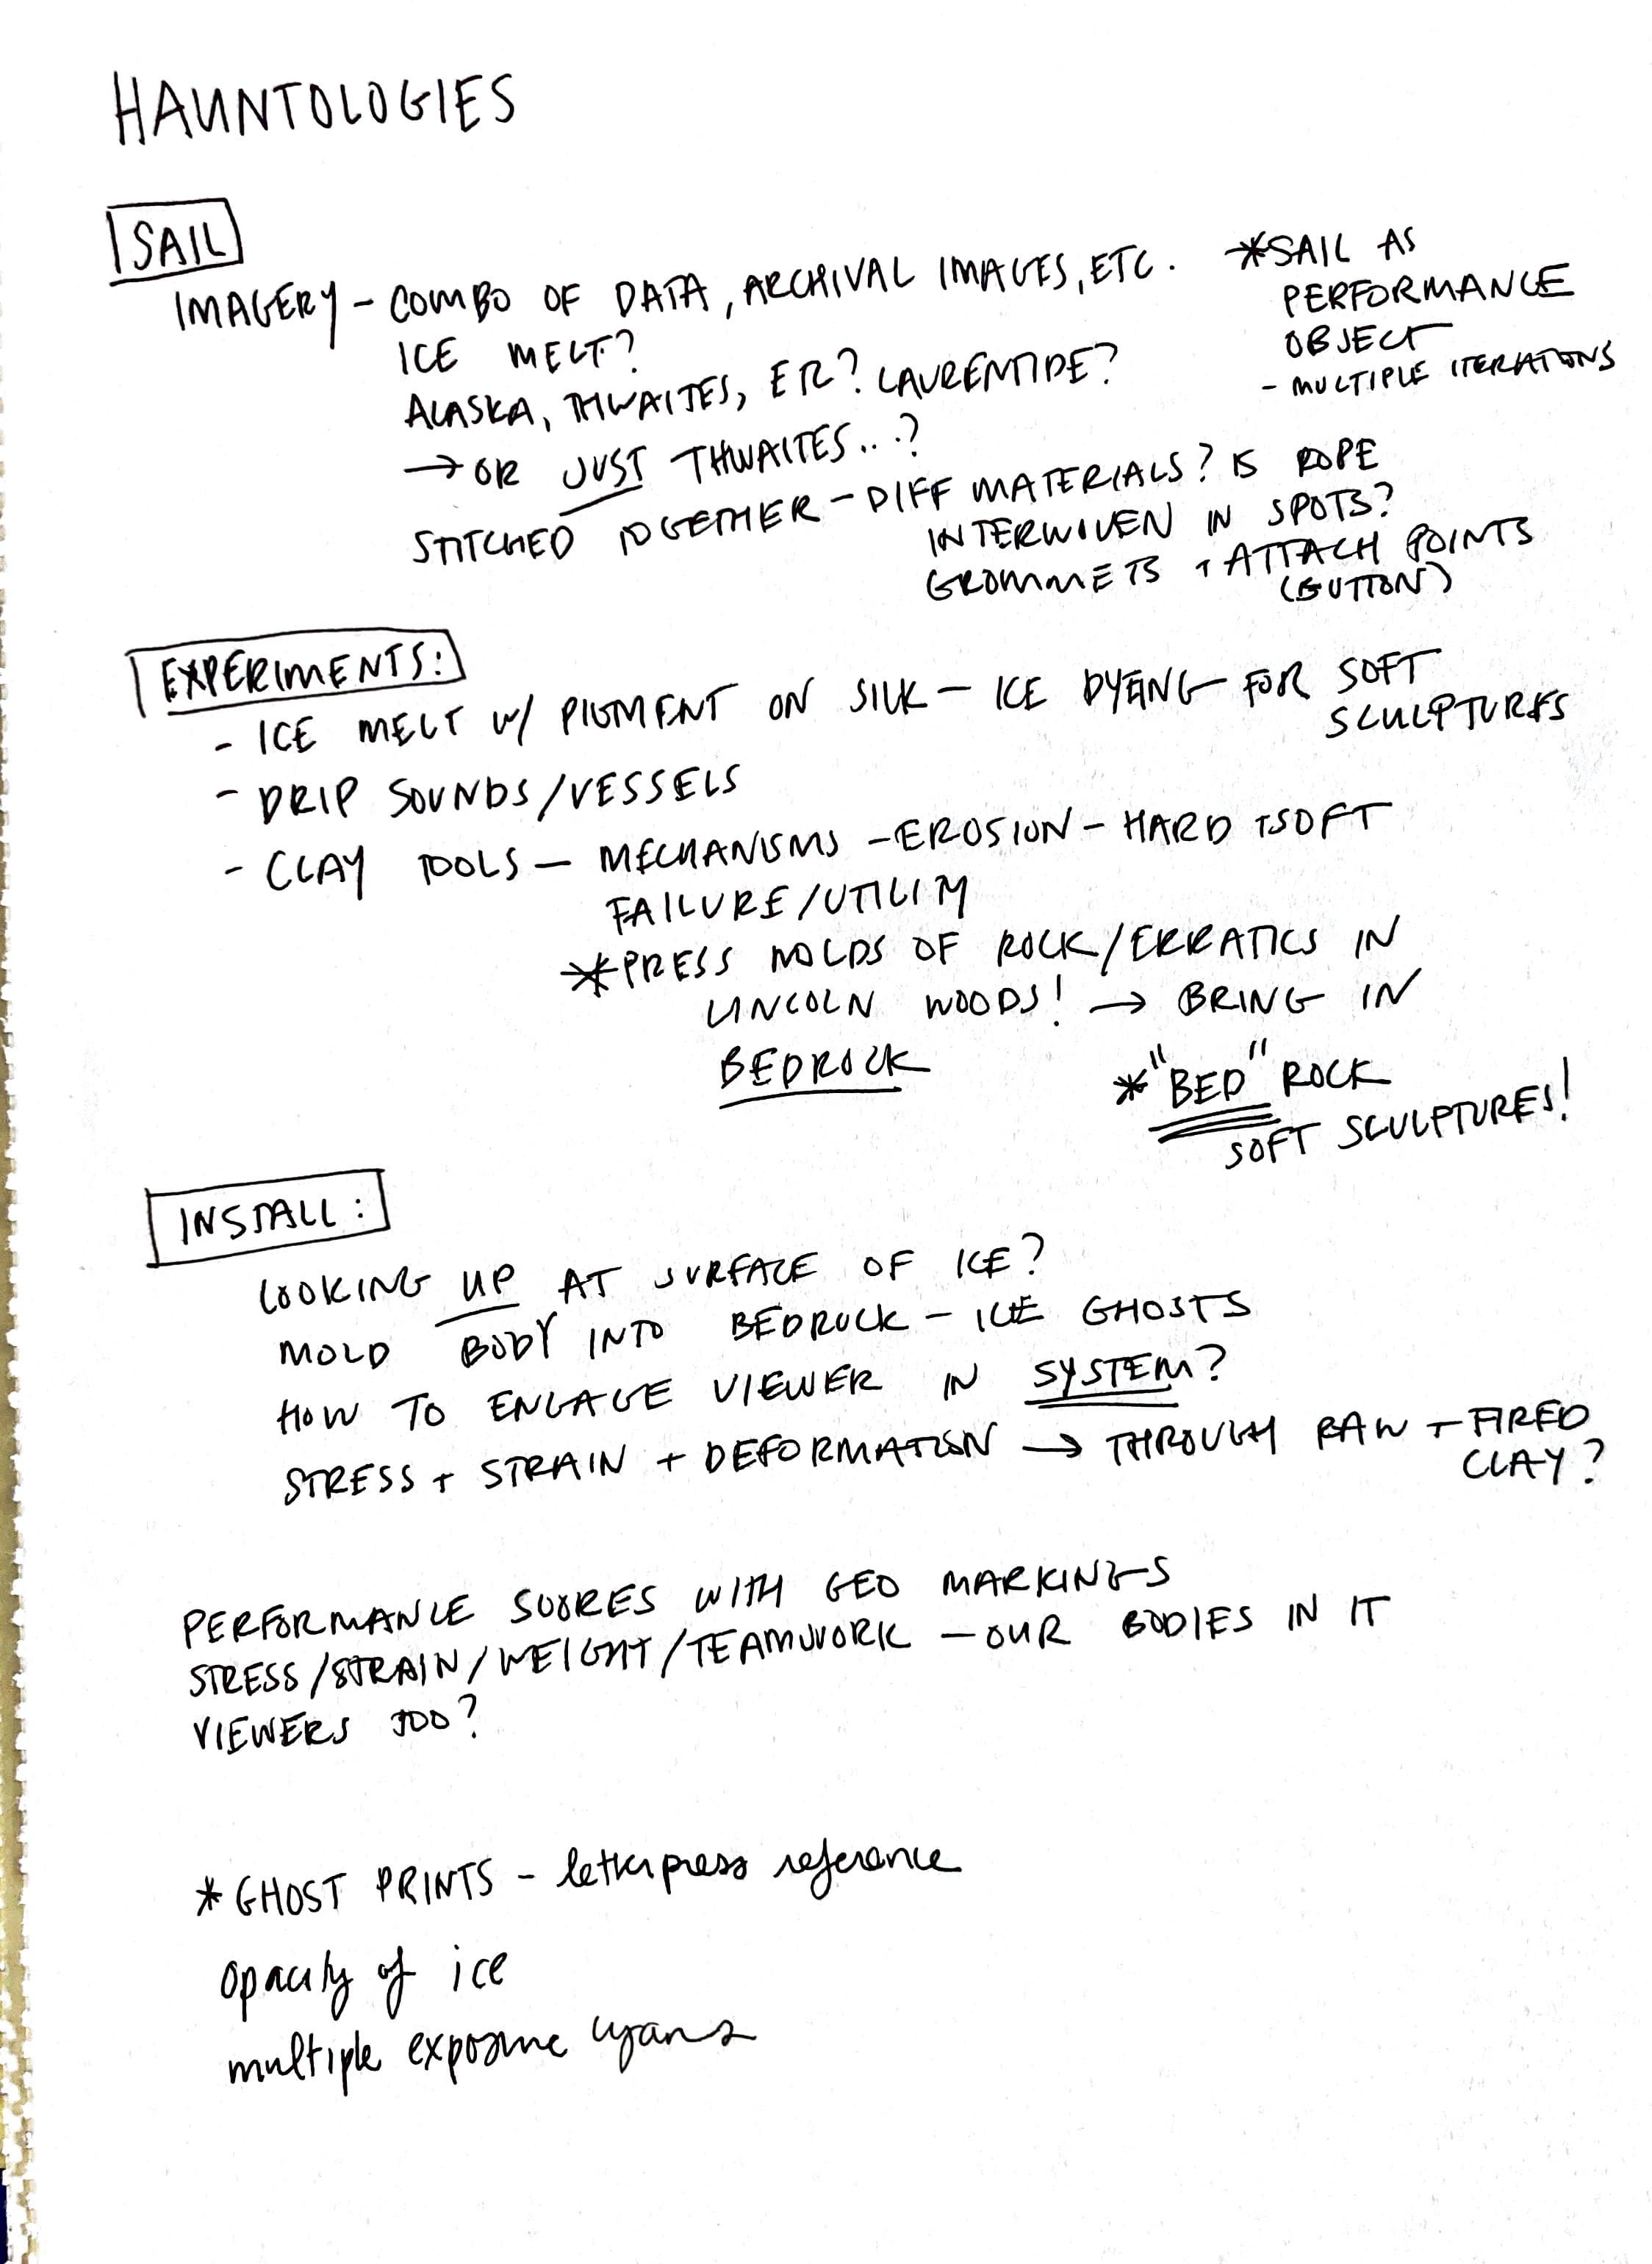 HAUNTOLOGIES
SAIL
IMAGERY – COMBO OF DATA, ARCHIVAL IMAGES, ETC.
ICE MELT?
ALASKA, THWAITES, ETC? LAURENTIDE?
→ OR JUST THWAITES...?
STITCHED TOGETHER – DIFF MATERIALS? IS ROPE
INTERWOVEN IN SPOTS?
GROMMETS + ATTACH POINTS
(BUTTON)
*SAIL AS
PERFORMANCE
OBJECT
- MULTIPLE ITERATIONS
EXPERIMENTS:
- ICE MELT W/ PIGMENT ON SILK – ICE DYEING FOR SOFT
SCULPTURES
- DRIP SOUNDS/VESSELS
- CLAY TOOLS – MECHANISMS – EROSION – HARD + SOFT
FAILURE/UTILITY
*PRESS MOLDS OF ROCK/ERRATICS IN
LINCOLN WOODS! → BRING IN
BEDROCK
*"BED" ROCK
SOFT SCULPTURES!
INSTALL:
LOOKING UP AT SURFACE OF ICE?
MOLD BODY INTO BEDROCK – ICE GHOSTS
HOW TO ENGAGE VIEWER IN SYSTEM?
STRESS + STRAIN + DEFORMATION → THROUGH RAW + FIRED
CLAY?
PERFORMANCE SCORES WITH GEO MARKINGS
STRESS/STRAIN/WEIGHT/TEAMWORK – OUR BODIES IN IT
VIEWERS TOO?
*GHOST PRINTS – letterpress reference
opacity of ice
multiple exposure cyans